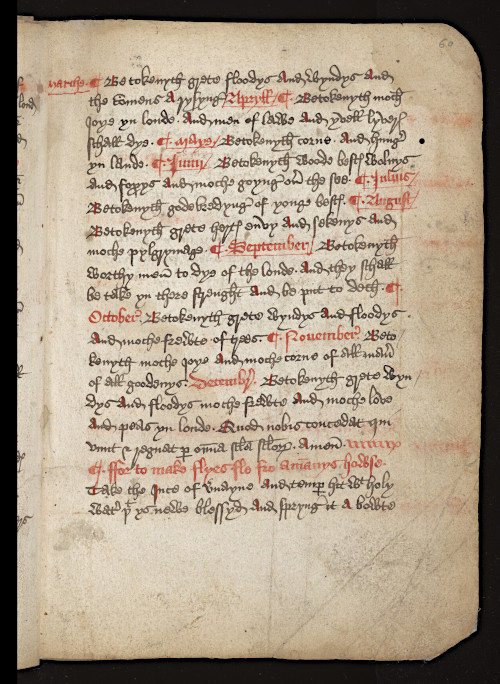 60
Marche ¶ Betokenyth grete floodys And wyndys And
the Comens A rysyng Apryll ¶ Betokenyth moch
Joye yn londe. And men of lawe And yvell lyvers
schall dye. ¶ Maye Betokenyth corne. And
yn londe. ¶ Junij Betokenyth woode best wolvys
And foxys And moche goyng ovr the see. ¶ Julius
Betokenyth gode bredyng of yonge best. ¶ August
Betokenyth grete envy And sekenys And
moche pylgrymage. ¶ September Betokenyth
worthy men to dye of the londe. And they schall
be take yn there strenght And be put to deth. ¶
October. Betokenyth grete wyndys And floodys.
And moche frewte of trees. ¶ November. Beto
kenyth moche Joye And moche corne of All
of All goodenys. December. Betokenyth grete wyn
dys And floodys moche frewte And moche love
And peas yn londe. Quod nobis concedat qui
vivit & regnat p omia scla sclor. Amen.
¶ ffor to make flyes flo fro A mannys howse.
Take the Juce of And temp hit wt holy
wat yt ys newe blessyd And spryng it A bowte